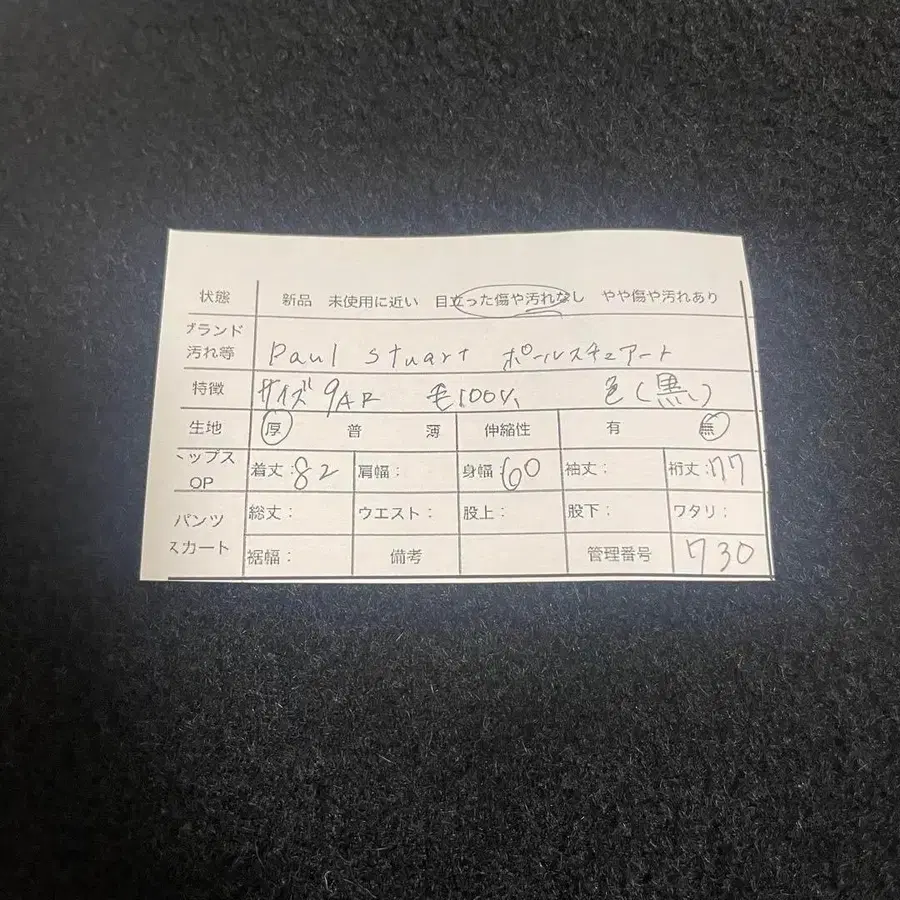 状態 新品 未使用に近い 目立った傷や汚れなし やや傷や汚れあり
ブランド
汚れ等 Paul Stuart ポールスチュアート
特徴 サイズ9AR 毛100% 色(黒)
生地 厚 普 薄 伸縮性 有 無
トップス
OP 着丈:82 肩幅: 身幅:60 袖丈: 裄丈:77
パンツ 総丈: ウエスト: 股上: 股下: ワタリ:
スカート 裾幅: 備考 管理番号 730